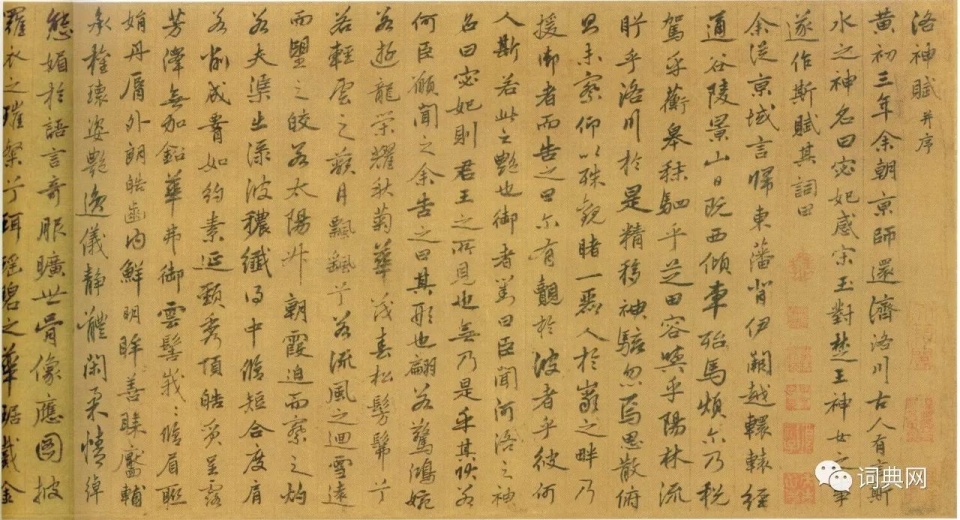 洛神賦 并序
黄初三年余朝京師還濟洛川古人有言斯
水之神名曰宓妃感宋玉對楚王神女之事
遂作斯賦其詞曰
余從京域言歸東藩背伊闕越轘轅經
通谷陵景山日既西傾車殆馬煩尔乃稅
駕乎蘅皋秣駟乎芝田容與乎陽林流
眄乎洛川於是精移神駭忽焉思散俯
則未察仰以殊觀睹一麗人於巖之畔乃
援御者而告之曰尔有覿於彼者乎彼何
人斯若此之艷也御者對曰臣聞河洛之神
名曰宓妃則君王之所見也無乃是乎其狀若
何臣願聞之余告之曰其形也翩若驚鴻婉
若遊龍榮耀秋菊華茂春松髣髴兮
若輕雲之蔽月飄飄兮若流風之迴雪遠
而望之皎若太陽升朝霞迫而察之灼
若夫渠出渌波穠纖得中脩短合度肩
若削成腰如約素延頸秀項皓質呈露
芳澤無加鉛華弗御雲髻峩〻脩眉聯
娟丹脣外朗皓齒内鮮明眸善睞靨輔
承權瓌姿艷逸儀靜體閑柔情綽
態媚於語言奇服曠世骨像應圖披
羅衣之璀粲兮珥瑶碧之華琚戴金
词典网